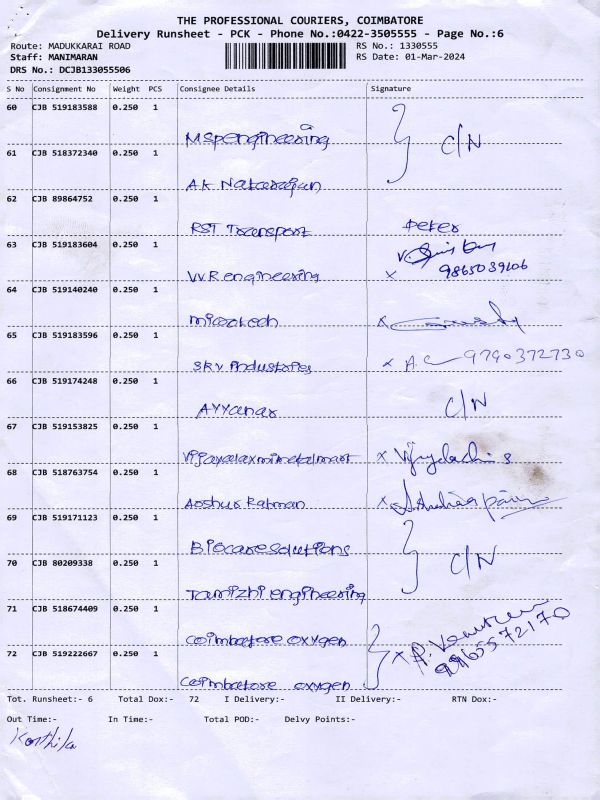 THE PROFESSIONAL COURIERS, COIMBATORE
Delivery Runsheet - PCK - Phone No.:0422-3505555 - Page No.:6
Route: MADUKKARAI ROAD RS No.: 1330555
Staff: MANIMARAN RS Date: 01-Mar-2024
DRS No.: DCJB133055506
S No Consignment No Weight PCS Consignee Details Signature
60 CJB 519183588 0.250 1
MSPengineering C/N
61 CJB 518372340 0.250 1
A K Natarajan
62 CJB 89864752 0.250 1
RST Transport Peter
63 CJB 519183604 0.250 1
V.V.R engineering x 9865039106
64 CJB 519140240 0.250 1
microtech x
65 CJB 519183596 0.250 1
SRV industries x A.C 9790372730
66 CJB 519174248 0.250 1
Ayyanar C/N
67 CJB 519153825 0.250 1
Vijayalaxmimetalmart x
68 CJB 518763754 0.250 1
Aoshur Rahman x
69 CJB 519171123 0.250 1
Biocaresolutions C/N
70 CJB 80209338 0.250 1
Tamizhi engineering
71 CJB 518674409 0.250 1
Coimbatore oxygen x 9965572170
72 CJB 519222667 0.250 1
Coimbatore oxygen
Tot. Runsheet:- 6 Total Dox:- 72 I Delivery:- II Delivery:- RTN Dox:-
Out Time:- In Time:- Total POD:- Delvy Points:-